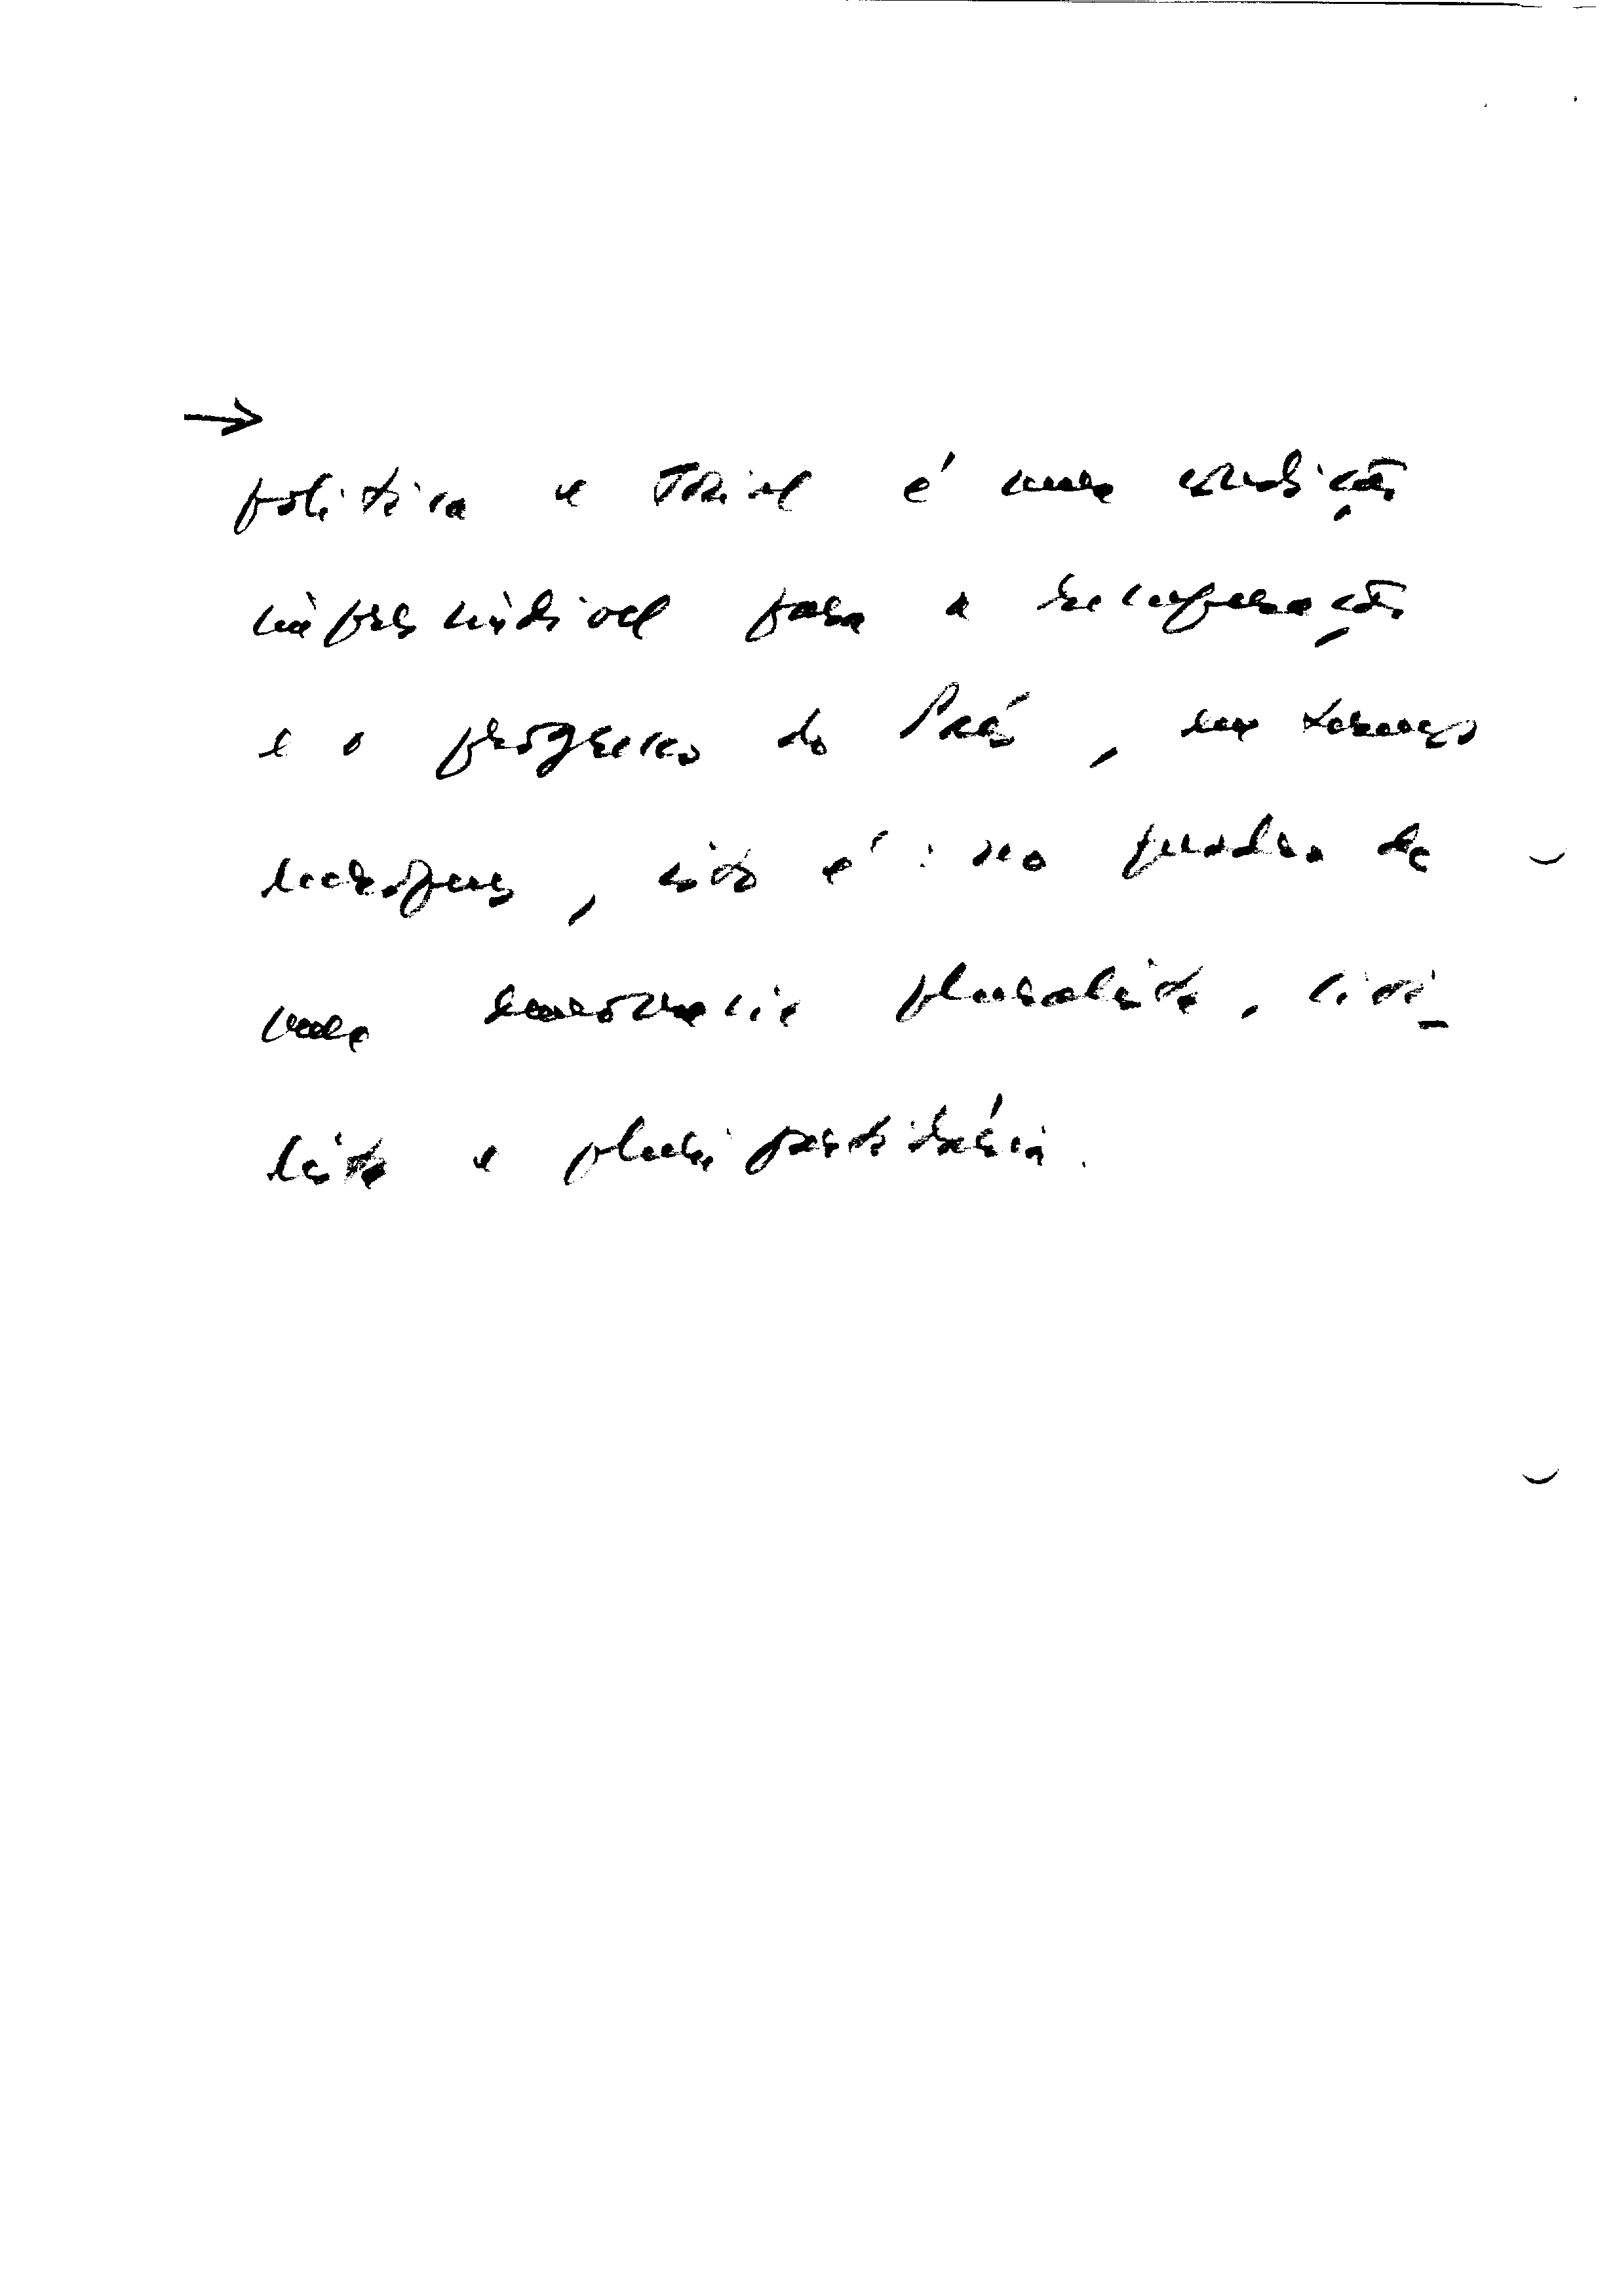 →
política e social é uma condição
imprescindível para a recuperação
e o progresso do País, em termos
europeus, isto é: no quadro de
uma democracia pluralista, civi-
lista e pluripartidária.